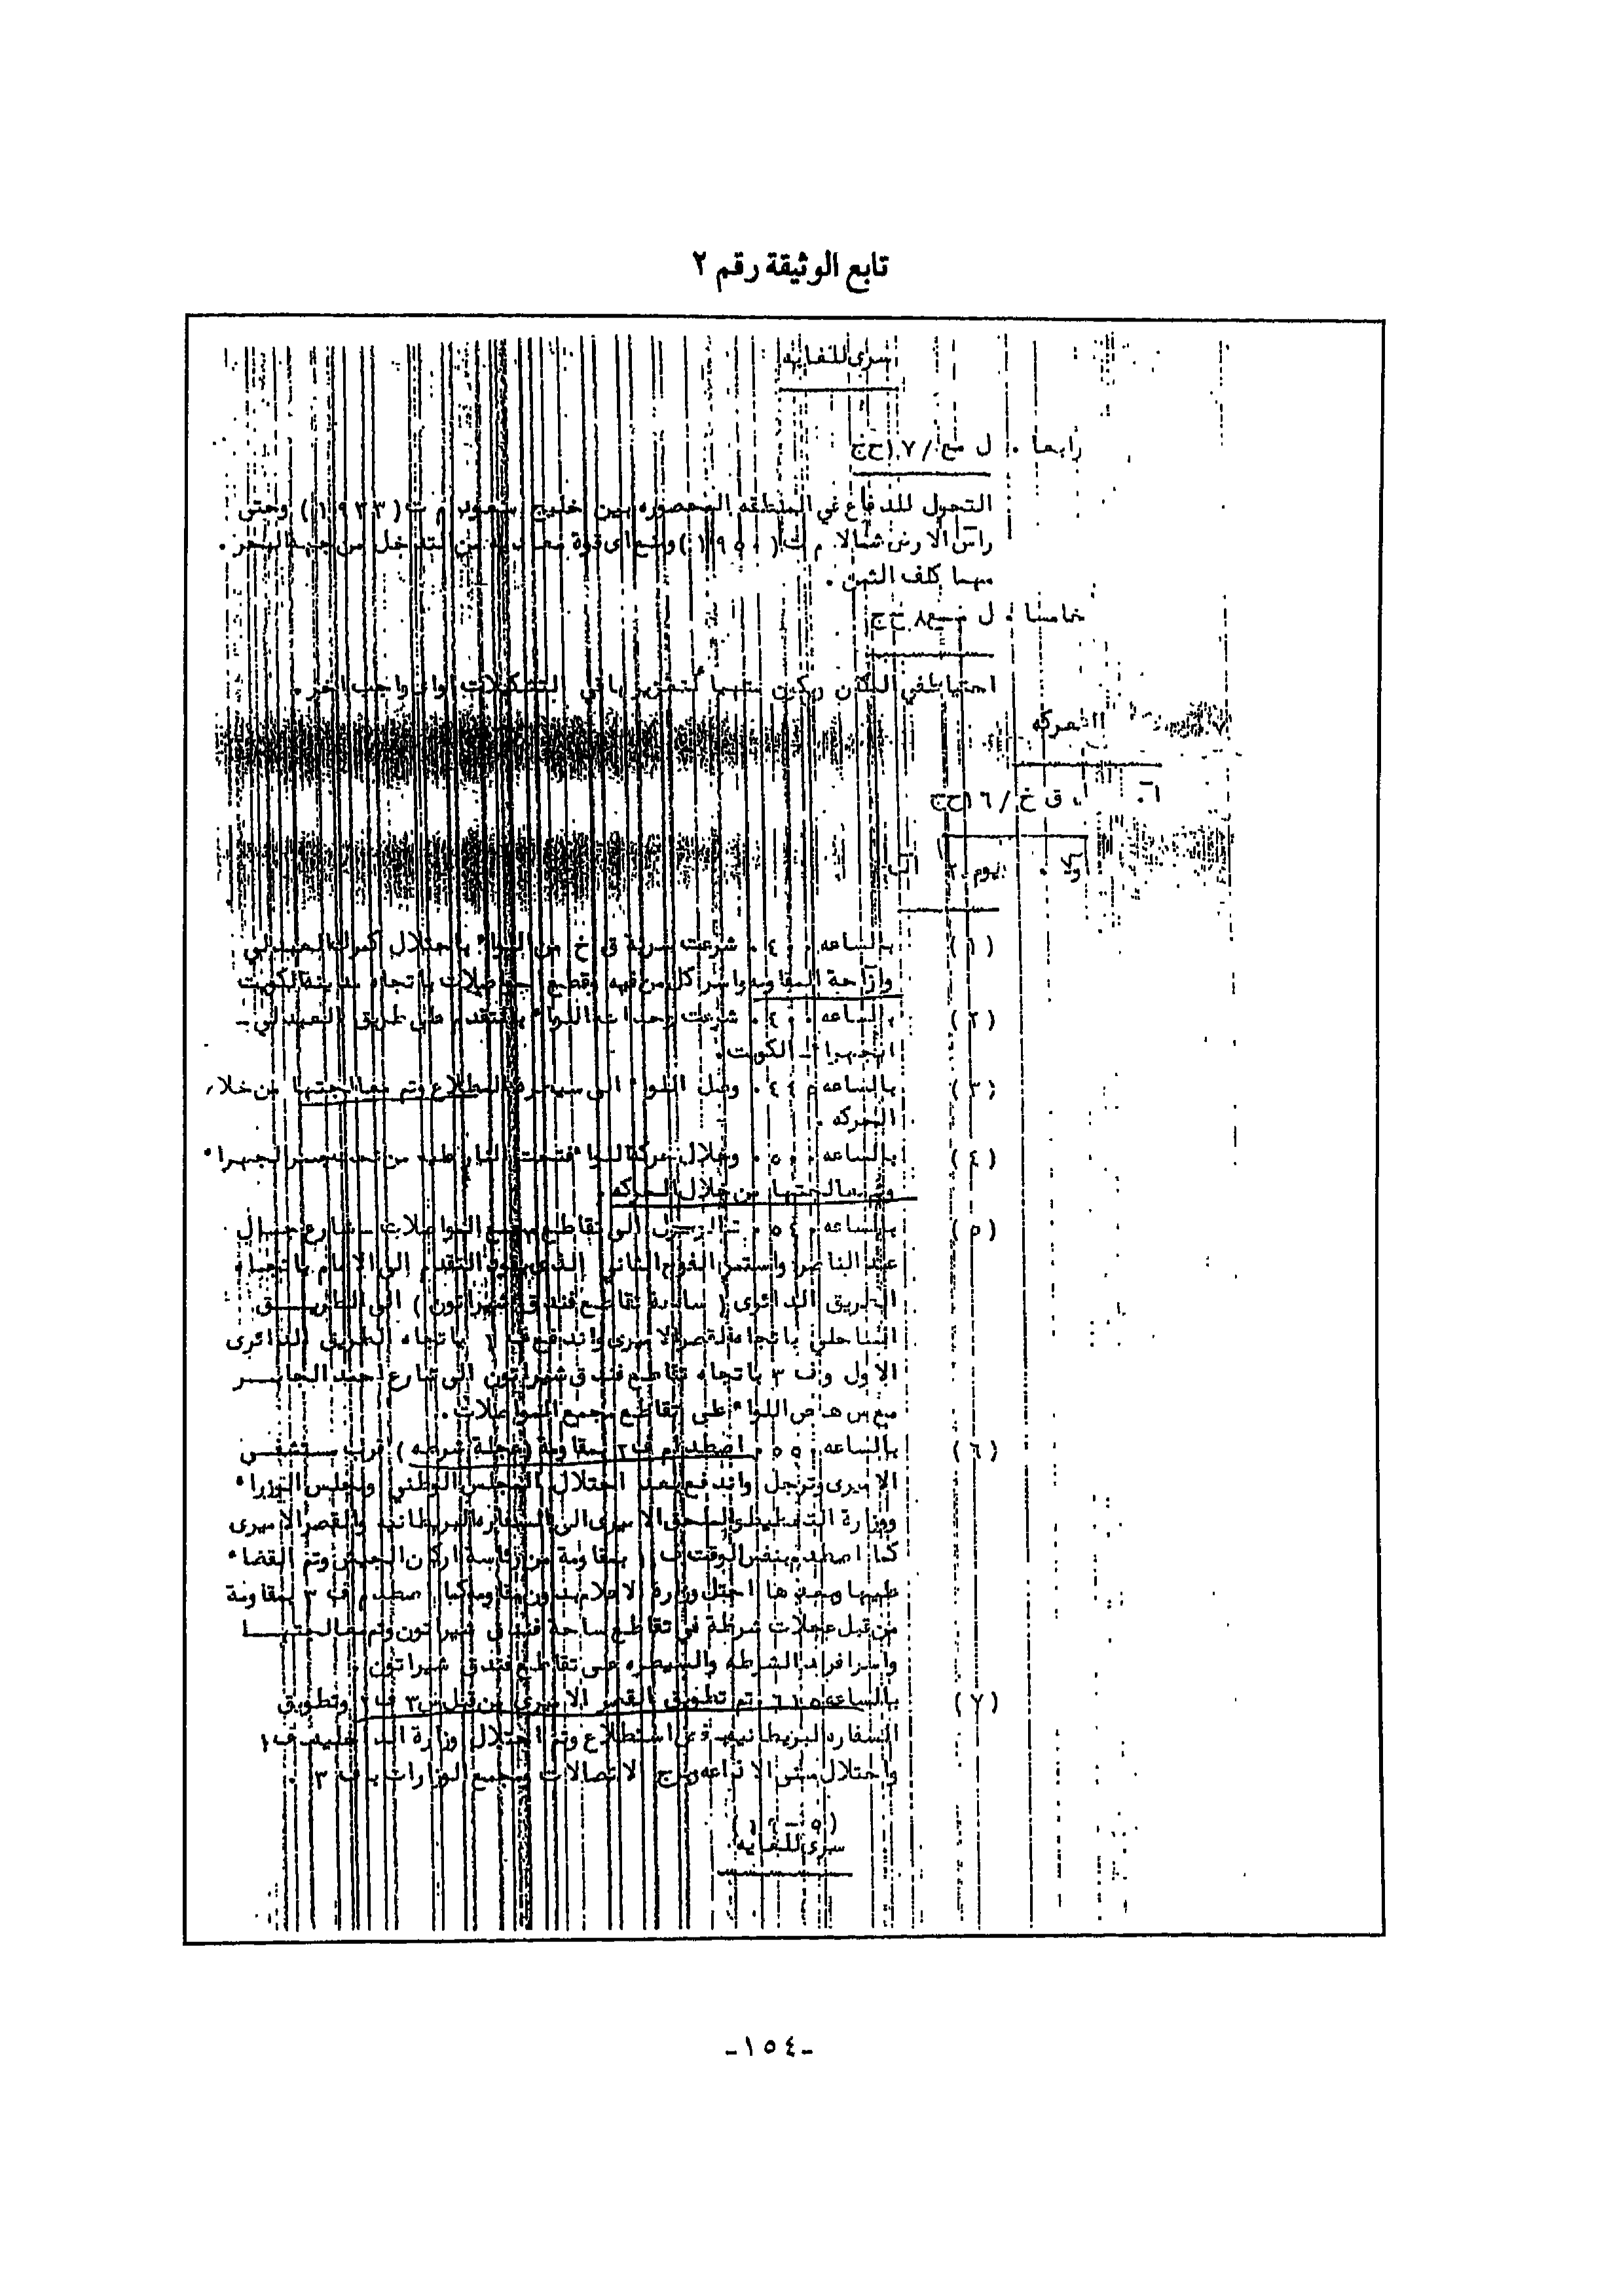 تابع الوثيقة رقم ٢
سرى للغايه
رابعا . ل مع / ١٧ حج
التحول للدفاع في المنطقه المحصوره بين خليج م ت (١٩٢٣) وحتى
راس الارض شمالا م ت (١٩٥٠) ومنع اى قوة من التدخل من جهة البحر .
مهما كلف الثمن .
خامسا . ل مع ٨ حج
احتياط في المكان ويكون متهيأ باقي التشكيلات او اى واجب اخر .
٧. المعركه
آ. ا، ق خ / ١٦ حج
اولا . يوم آب
(١) بالساعه ٠٤٠٠ شرعت سرية ق خ من اللواء باحتلال كمرك العبدلي
وازاحة المقاومه واسر كل من فيه وقطع المواصلات باتجاه مدينة الكويت
(٢) بالساعه ٠٤٠٠ شرعت وحدات اللواء بالتقدم على طريق العبدلي -
الجهراء - الكويت .
(٣) بالساعه ٠٤٤٠ وصل اللواء الى سيطرة المطلاع وتم معالجتها من خلال
الحركه .
(٤) بالساعه ٠٥٠٠ وخلال حركة اللواء فتحت النار عليه من تحت جسر الجهراء
وتم معالجتها من خلال الحركه .
(٥) بالساعه ٠٥٤٠ تم الوصول الى تقاطع مجمع المواصلات - شارع جمال
عبد الناصر واستمر الفوج الثاني الذى يقود التقدم الى الامام باتجاه
الطريق الدائرى ( ساحة تقاطع فندق شيراتون ) الى الطريق
الساحلي باتجاه القصر الاميرى واندفع ف ١ باتجاه الطريق الدائرى
الاول و ف ٣ باتجاه تقاطع فندق شيراتون الى شارع احمد الجابر
مع س هـ ص اللواء على تقاطع مجمع المواصلات .
(٦) بالساعه ٠٥٥٠ اصطدام ف ٢ بمقاومة (عجلة شرطه) قرب مستشفى
الاميرى وترجل واندفع بعد احتلال المجلس الوطني ومجلس الوزراء
ووزارة التخطيط والملحق الاميرى الى السفاره البريطانيه والقصر الاميرى
كما اصطدم بنفس الوقت ف ١ بمقاومة من رئاسة اركان الجيش وتم القضاء
عليها وبعدها احتل وزارة الاعلام بدون مقاومه كما اصطدم ف ٣ بمقاومة
من قبل عجلات شرطة في تقاطع ساحة فندق شيراتون وتم معالجتها
واسر افراد الشرطه والسيطره على تقاطع فندق شيراتون .
(٧) بالساعه ٠٦١٥ تم تطويق القصر الاميرى من قبل س ٣ ف ٢ وتطويق
السفاره البريطانيه استطلاع وتم احتلال وزارة الداخليه ف ١
واحتلال مبنى الاذاعه وبرج الاتصالات ومجمع الوزارات ب ف ٣ .
سرى للغايه
-١٥٤-